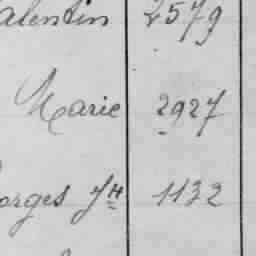 alentin 2579
Marie 2927
orges Jh 1132